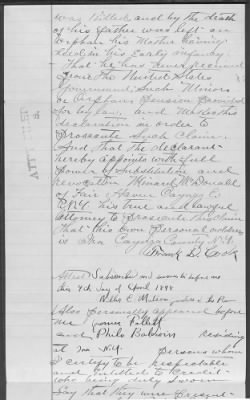 was killed and by the death
of his father was left an
orphan his Mother having
died in his early infancy
That he has never received
from the United States
Government such Minors
or Orphans Pension provided
for by law, and makes this
declaration in order to
prosecute such claim.
And that the declarant
hereby appoints with full
power of Substitution and
revocation McDonald
of Fair Haven Cayuga Co
N.Y. his true and lawful
attorney to prosecute this claim
That his own Personal address
is Ira Cayuga County N.Y.
Frank D. Cook
Attest Subscribed and sworn to before me
this 9th day of April 1888
Also personally appeared before
me James
and Philo residing
at Ira N.Y. persons whom
I certify to be respectable
and entitled to credit
who being duly sworn
Say that they were present